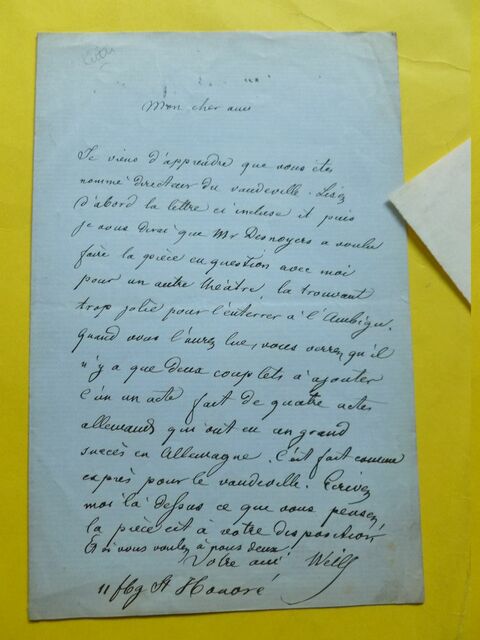 Mon cher ami
Je viens d'apprendre que vous êtes
nommé directeur du vaudeville. Lisez
d'abord la lettre ci incluse et puis
je vous dirai que Mr Desnoyers a voulu
faire la pièce en question avec moi
pour un autre théâtre la trouvant
trop jolie pour l'enterrer à l'Ambigu.
quand vous l'aurez lue, vous verrez qu'il
n'y a que deux couplets à ajouter
c'est un acte fait de quatre actes
allemands qui ont eu un grand
succès en Allemagne. C'est fait comme
exprès pour le vaudeville. Ecrivez
moi là dessus ce que vous pensez,
la pièce est à votre disposition
Et si vous voulez à nous deux.
Votre ami Weill
11 fbg St Honoré